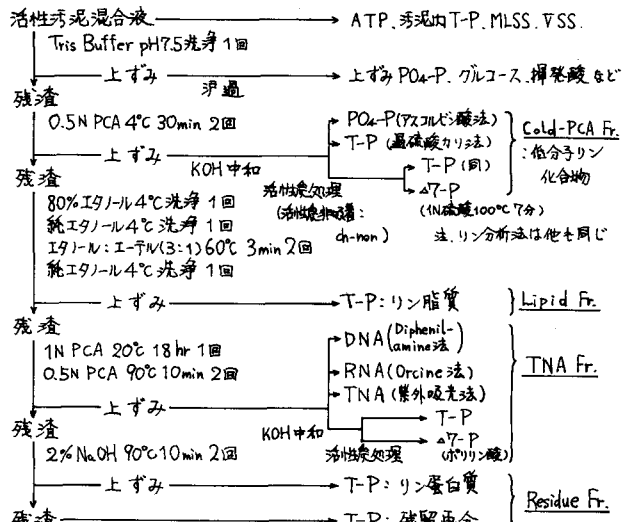 活性汚泥混合液 → ATP. 汚泥内T-P. MLSS. VSS.
Tris Buffer pH7.5洗浄1回
上ずみ 沪過 上ずみPO₄-P. グルコース. 揮発酸など
残渣
0.5N PCA 4℃ 30min 2回
PO₄-P(アスコルビン酸法)
T-P(過硫酸カリ法)
Cold-PCA Fr.
:低分子リン
化合物
上ずみ KOH中和
T-P(同)
△7-P
(1N硫酸100℃7分)
残渣
活性炭処理
(活性炭非吸着:
ch-non)
注. リン分析法は他も同じ
80%エタノール4℃洗浄 1回
純エタノール4℃洗浄 1回
エタノール:エーテル(3:1)60℃ 3min 2回
純エタノール4℃洗浄 1回
上ずみ → T-P:リン脂質 Lipid Fr.
残渣
1N PCA 20℃ 18hr 1回
0.5N PCA 90℃ 10min 2回
DNA(Diphenil-
amine法)
RNA(Orcine法)
TNA(紫外吸光法)
TNA Fr.
上ずみ KOH中和
活性炭処理
T-P
△7-P
(ポリリン酸)
残渣
2% NaOH 90℃ 10min 2回
上ずみ → T-P:リン蛋白質
残渣 → T-P:残留
Residue Fr.